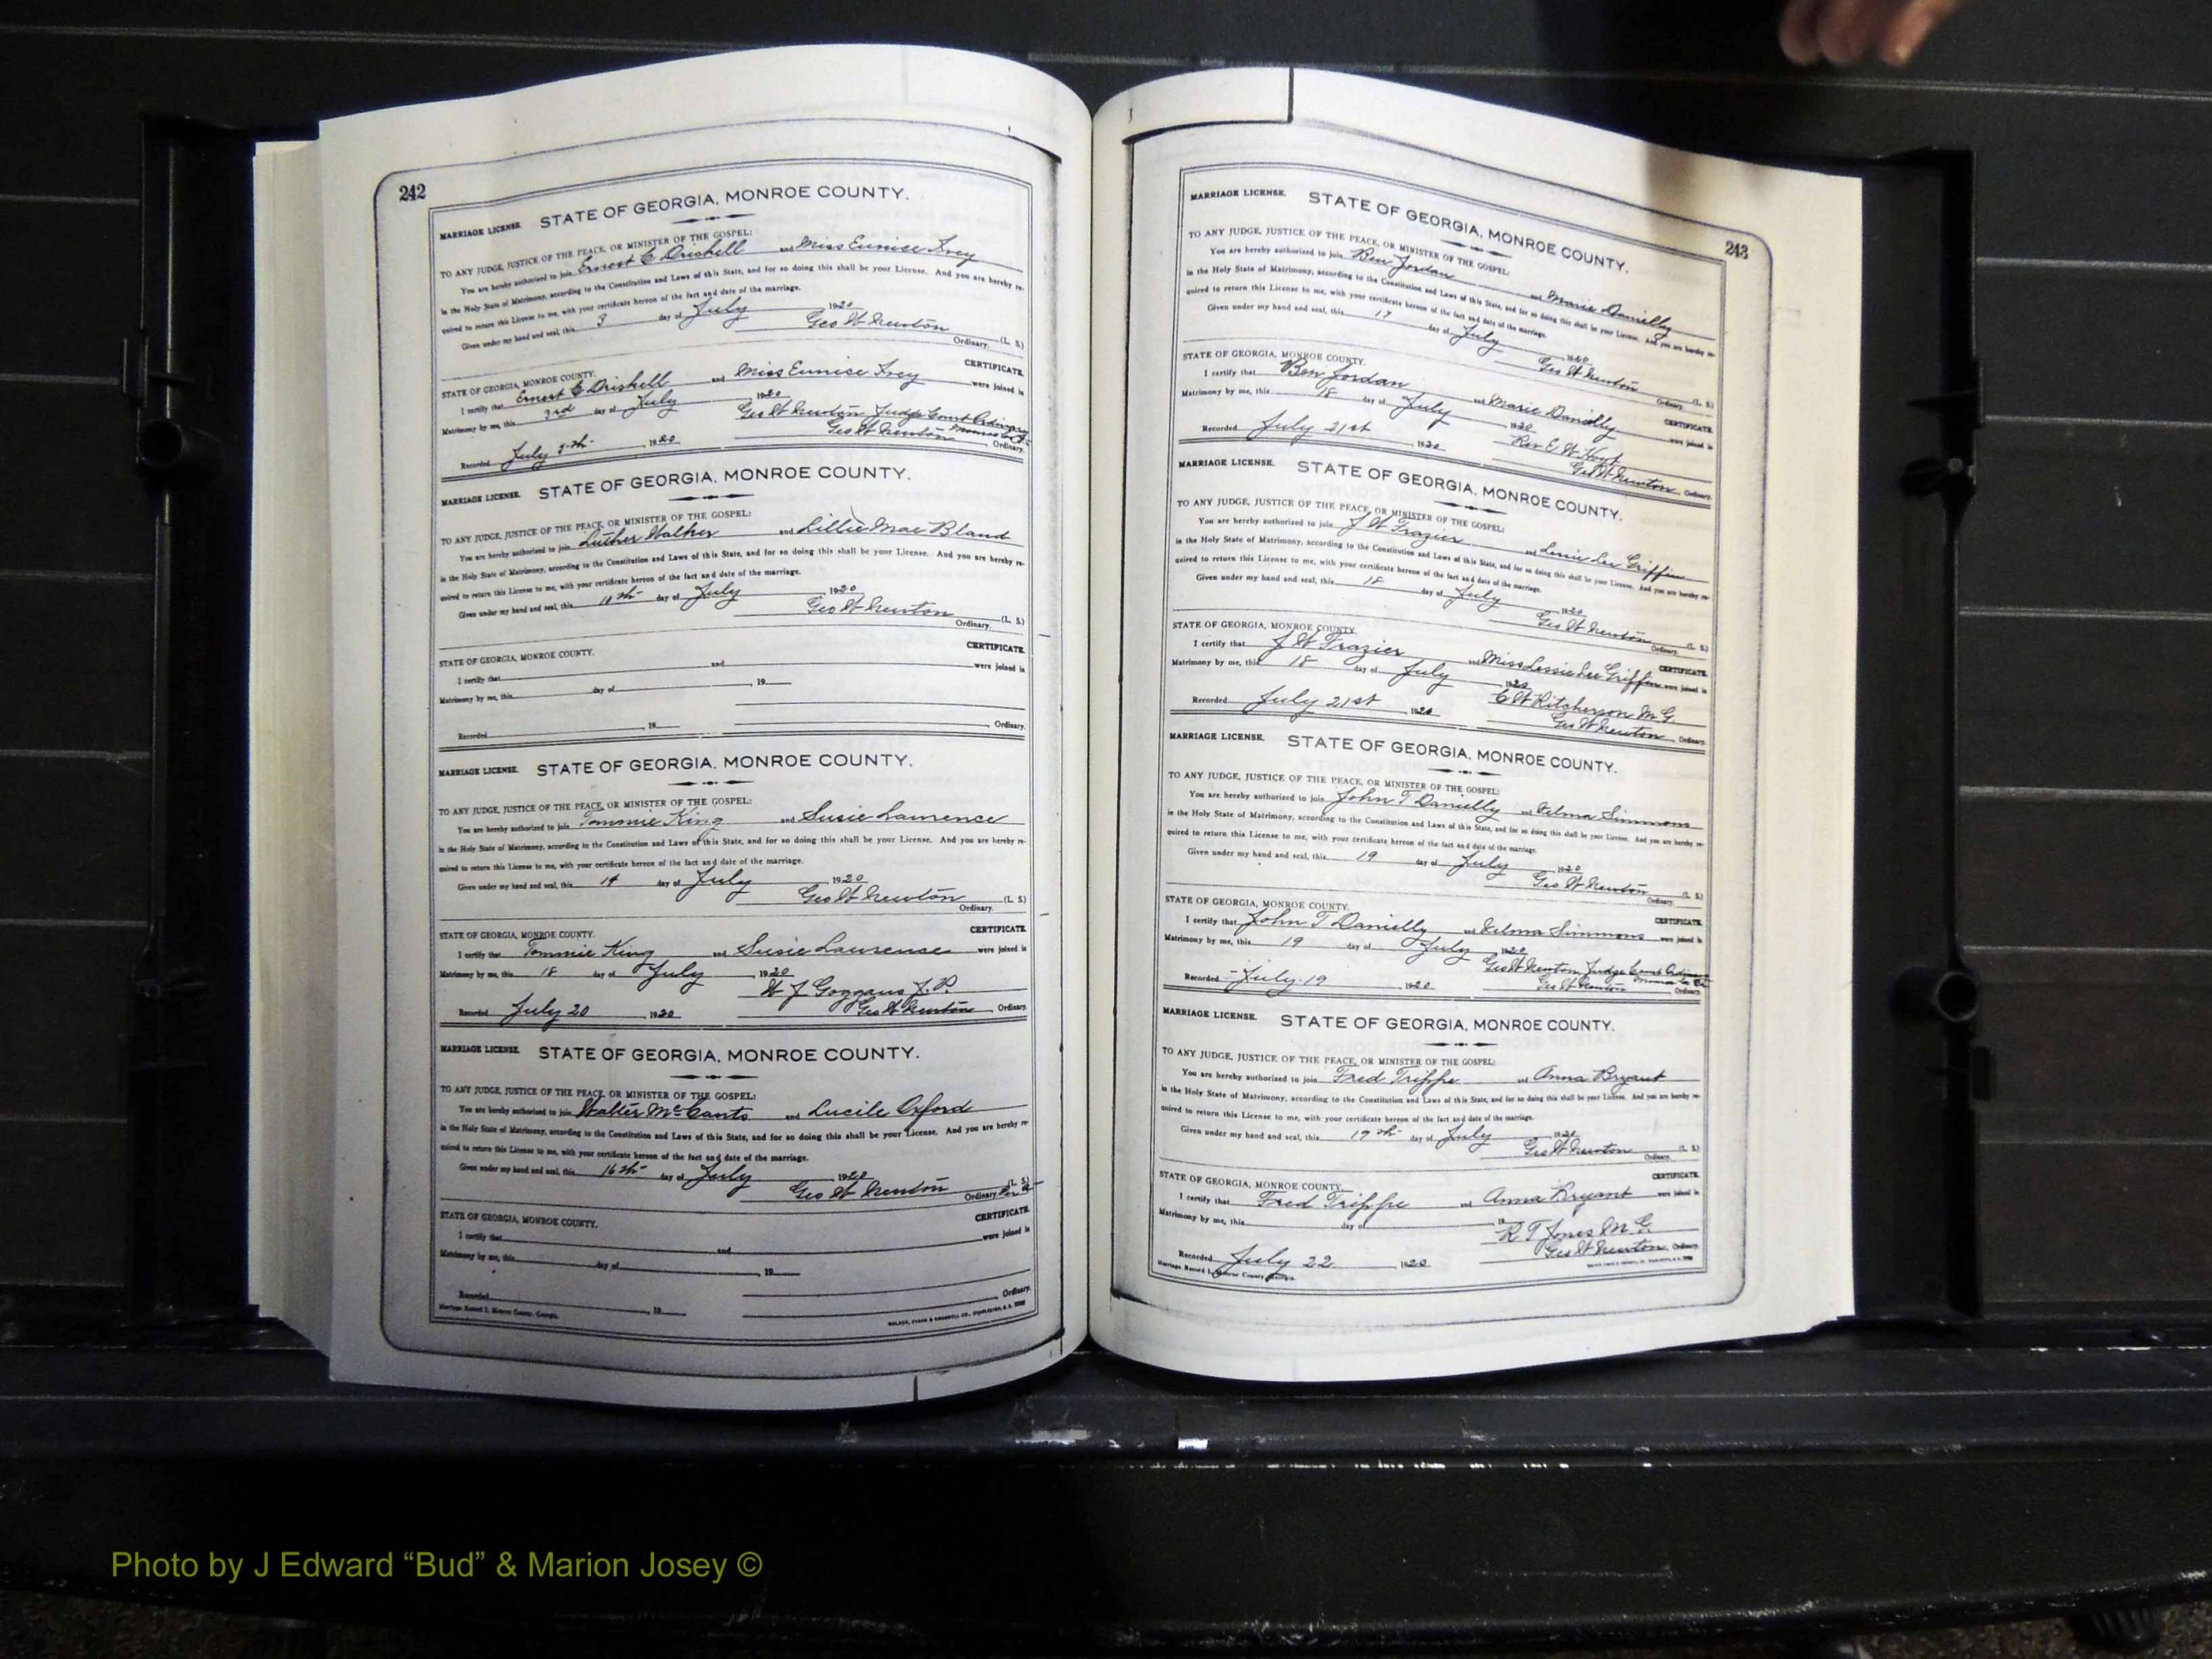 242
MARRIAGE LICENSE. STATE OF GEORGIA, MONROE COUNTY.
TO ANY JUDGE, JUSTICE OF THE PEACE, OR MINISTER OF THE GOSPEL:
You are hereby authorized to join Ernest C Driskell and Miss Eunice Ivey
in the Holy State of Matrimony, according to the Constitution and Laws of this State, and for so doing this shall be your License. And you are hereby re-
quired to return this License to me, with your certificate hereon of the fact and date of the marriage.
Given under my hand and seal, this 3 day of July 1920
Geo W Newton (L. S.)
Ordinary.
STATE OF GEORGIA, MONROE COUNTY. CERTIFICATE.
I certify that Ernest C Driskell and Miss Eunice Ivey were joined in
Matrimony by me, this 3rd day of July 1920
Geo W Newton Judge Court Ordinary
Recorded July 5th 1920 Geo W Newton Ordinary.
MARRIAGE LICENSE. STATE OF GEORGIA, MONROE COUNTY.
TO ANY JUDGE, JUSTICE OF THE PEACE, OR MINISTER OF THE GOSPEL:
You are hereby authorized to join Luther Walker and Lillie Mae Bland
in the Holy State of Matrimony, according to the Constitution and Laws of this State, and for so doing this shall be your License. And you are hereby re-
quired to return this License to me, with your certificate hereon of the fact and date of the marriage.
Given under my hand and seal, this 10th day of July 1920
Geo W Newton (L. S.)
Ordinary.
STATE OF GEORGIA, MONROE COUNTY. CERTIFICATE.
I certify that and were joined in
Matrimony by me, this day of , 19
Recorded , 19 , Ordinary.
MARRIAGE LICENSE. STATE OF GEORGIA, MONROE COUNTY.
TO ANY JUDGE, JUSTICE OF THE PEACE, OR MINISTER OF THE GOSPEL:
You are hereby authorized to join Tommie King and Susie Lawrence
in the Holy State of Matrimony, according to the Constitution and Laws of this State, and for so doing this shall be your License. And you are hereby re-
quired to return this License to me, with your certificate hereon of the fact and date of the marriage.
Given under my hand and seal, this 14 day of July , 1920
Geo W Newton (L. S.)
Ordinary.
STATE OF GEORGIA, MONROE COUNTY. CERTIFICATE.
I certify that Tommie King and Susie Lawrense were joined in
Matrimony by me, this 18 day of July , 1920
W J Goggans J. P.
Recorded July 20 , 1920 Geo W Newton , Ordinary.
MARRIAGE LICENSE. STATE OF GEORGIA, MONROE COUNTY.
TO ANY JUDGE, JUSTICE OF THE PEACE, OR MINISTER OF THE GOSPEL:
You are hereby authorized to join Walter McCants and Lucile Oxford
in the Holy State of Matrimony, according to the Constitution and Laws of this State, and for so doing this shall be your License. And you are hereby re-
quired to return this License to me, with your certificate hereon of the fact and date of the marriage.
Given under my hand and seal, this 16th day of July , 1920
Geo W Newton (L. S.)
Ordinary
STATE OF GEORGIA, MONROE COUNTY. CERTIFICATE.
I certify that and were joined in
Matrimony by me, this day of , 19
Recorded , 19 , Ordinary.
Marriage Record I, Monroe County, Georgia.
243
MARRIAGE LICENSE. STATE OF GEORGIA, MONROE COUNTY.
TO ANY JUDGE, JUSTICE OF THE PEACE, OR MINISTER OF THE GOSPEL:
You are hereby authorized to join Ben Jordan and Marie Danielly
in the Holy State of Matrimony, according to the Constitution and Laws of this State, and for so doing this shall be your License. And you are hereby re-
quired to return this License to me, with your certificate hereon of the fact and date of the marriage.
Given under my hand and seal, this 17 day of July 1920
Geo W Newton (L. S.)
Ordinary.
STATE OF GEORGIA, MONROE COUNTY. CERTIFICATE.
I certify that Ben Jordan and Marie Danielly were joined in
Matrimony by me, this 18 day of July , 1920
Rev E W Hoyt
Recorded July 21st , 1920 Geo W Newton Ordinary.
MARRIAGE LICENSE. STATE OF GEORGIA, MONROE COUNTY.
TO ANY JUDGE, JUSTICE OF THE PEACE, OR MINISTER OF THE GOSPEL:
You are hereby authorized to join J W Frazier and Lessie Lee Griffin
in the Holy State of Matrimony, according to the Constitution and Laws of this State, and for so doing this shall be your License. And you are hereby re-
quired to return this License to me, with your certificate hereon of the fact and date of the marriage.
Given under my hand and seal, this 18 day of July , 1920
Geo W Newton (L. S.)
Ordinary.
STATE OF GEORGIA, MONROE COUNTY. CERTIFICATE.
I certify that J W Frazier and Miss Lessie Lee Griffin were joined in
Matrimony by me, this 18 day of July , 1920
C W Ritcherson M. G.
Recorded July 21st , 1920 Geo W Newton , Ordinary.
MARRIAGE LICENSE. STATE OF GEORGIA, MONROE COUNTY.
TO ANY JUDGE, JUSTICE OF THE PEACE, OR MINISTER OF THE GOSPEL:
You are hereby authorized to join John T Danielly and Velma Simmons
in the Holy State of Matrimony, according to the Constitution and Laws of this State, and for so doing this shall be your License. And you are hereby re-
quired to return this License to me, with your certificate hereon of the fact and date of the marriage.
Given under my hand and seal, this 19 day of July , 1920
Geo W Newton (L. S.)
Ordinary.
STATE OF GEORGIA, MONROE COUNTY. CERTIFICATE.
I certify that John T Danielly and Velma Simmons were joined in
Matrimony by me, this 19 day of July , 1920
Geo W Newton Judge Court Ordinary
Recorded July 19 , 1920 Geo W Newton Ordinary.
MARRIAGE LICENSE. STATE OF GEORGIA, MONROE COUNTY.
TO ANY JUDGE, JUSTICE OF THE PEACE, OR MINISTER OF THE GOSPEL:
You are hereby authorized to join Fred Trippe and Anna Bryant
in the Holy State of Matrimony, according to the Constitution and Laws of this State, and for so doing this shall be your License. And you are hereby re-
quired to return this License to me, with your certificate hereon of the fact and date of the marriage.
Given under my hand and seal, this 19th day of July , 1920
Geo W Newton (L. S.)
Ordinary.
STATE OF GEORGIA, MONROE COUNTY. CERTIFICATE.
I certify that Fred Trippe and Anna Bryant were joined in
Matrimony by me, this day of , 19
R T Jones M. G.
Recorded July 22 , 1920 Geo W Newton , Ordinary.
Marriage Record I, Monroe County Georgia.
Photo by J Edward “Bud” & Marion Josey ©